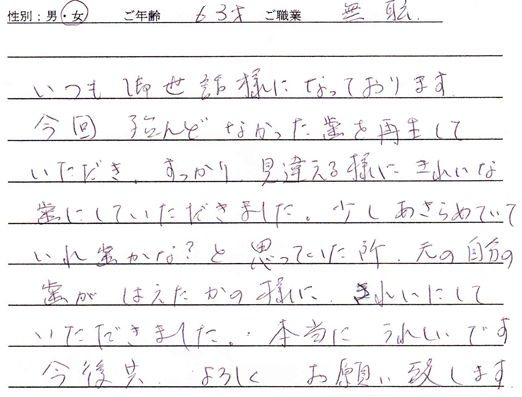 性別：男・女 ご年齢 63才 ご職業 無職
いつも御世話様になっております
今回 殆んどなかった歯を再生して
いただき、すっかり見違える様にきれいな
歯にしていただきました。少しあきらめていて
いれ歯かな？と思っていた所、元の自分の
歯がはえたかの様に、きれいにして
いただきました。本当にうれしいです
今後共、よろしくお願い致します